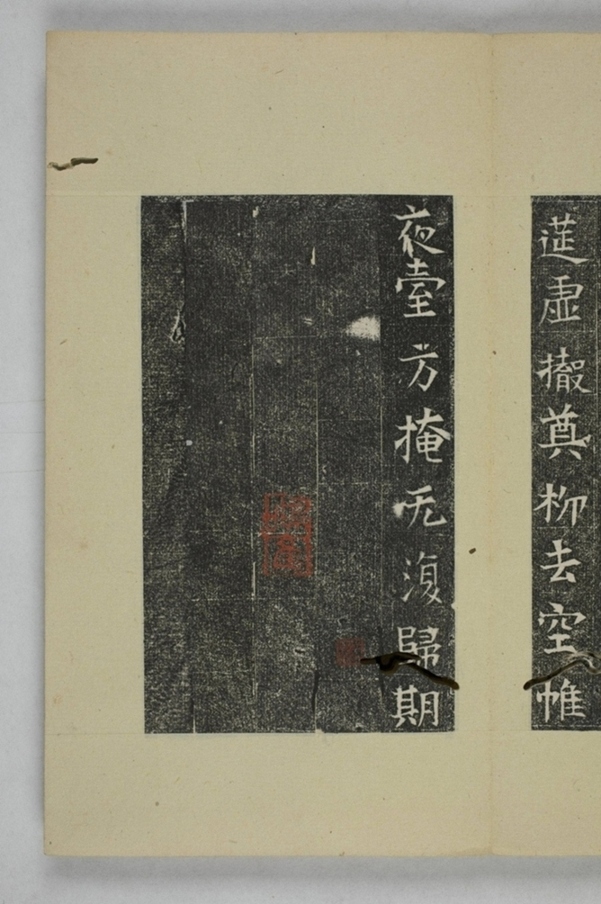 莚虚撤奠柳去空帷
夜臺方掩无復歸期